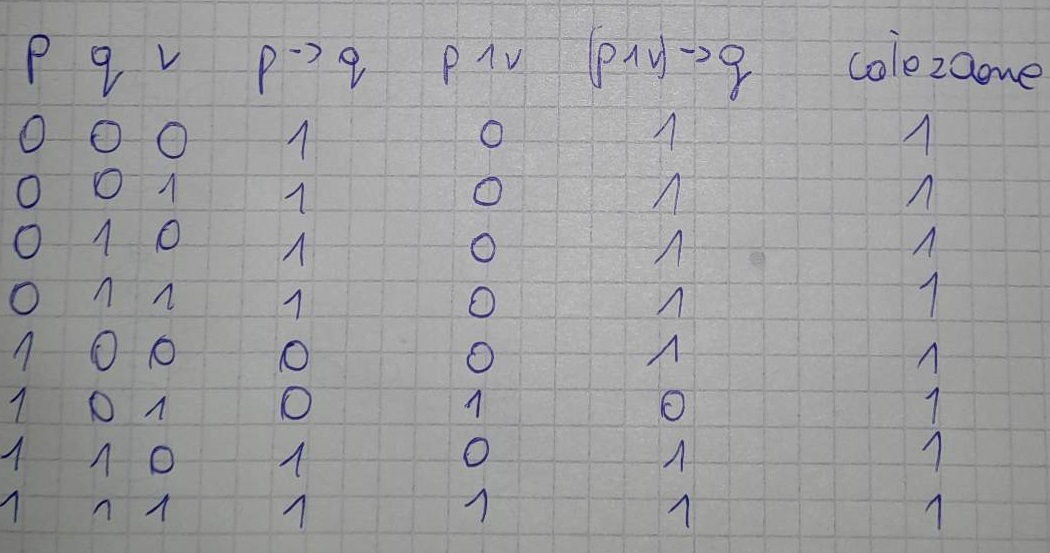 p q r p -> q p ∧ r (p ∧ r) -> q całe zdanie
0 0 0 1 0 1 1
0 0 1 1 0 1 1
0 1 0 1 0 1 1
0 1 1 1 0 1 1
1 0 0 0 0 1 1
1 0 1 0 1 0 1
1 1 0 1 0 1 1
1 1 1 1 1 1 1